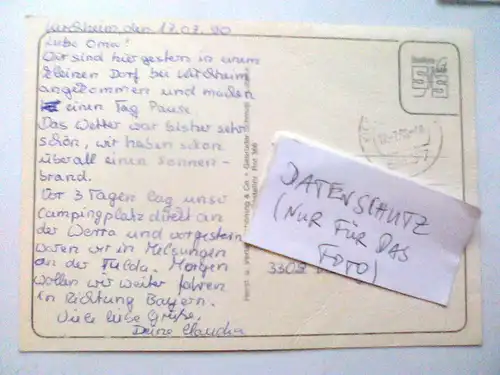 Kirchheim, den 17.07.90
Liebe Oma!
Wir sind hier gestern in einem
kleinen Dorf bei Kirchheim
angekommen und machen
einen Tag Pause.
Das Wetter war bisher sehr
schön, wir haben schon
überall einen Sonnen-
brand.
Vor 3 Tagen lag unser
Campingplatz direkt an
der Werra und vorgestern
waren wir in Melsungen
an der Fulda. Morgen
wollen wir weiter fahren
in Richtung Bayern.
Viele liebe Grüße,
Deine Claudia
DATENSCHUTZ
(NUR FÜR DAS
FOTO)